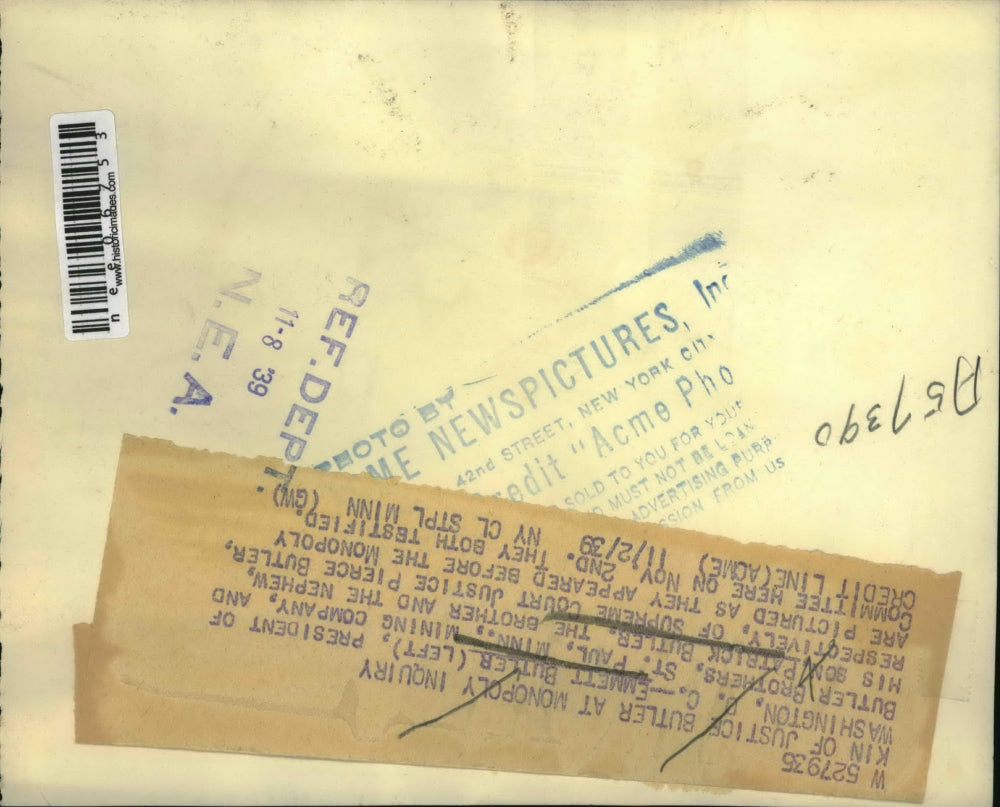 n e e 0 6 7 5 3
www.historicimages.com
N.E.A.
11-8 '39
REF. DEPT
PHOTO BY
ME NEWSPICTURES, Inc
42nd STREET, NEW YORK CITY
edit "Acme Pho
SOLD TO YOU FOR YOUR
MUST NOT BE LOAN
ADVERTISING PURP
SSION FROM US
A57390
W 527935
KIN OF JUSTICE BUTLER AT MONOPOLY INQUIRY
WASHINGTON, D. C.--EMMETT BUTLER (LEFT), PRESIDENT OF
BUTLER BROTHERS, ST. PAUL, MINN., MINING COMPANY, AND
HIS SON PATRICK BUTLER, THE BROTHER AND THE NEPHEW,
RESPECTIVELY, OF SUPREME COURT JUSTICE PIERCE BUTLER,
ARE PICTURED AS THEY APPEARED BEFORE THE MONOPOLY
COMMITTEE HERE ON NOV 2ND. THEY BOTH TESTIFIED.
CREDIT LINE(ACME) 11/2/39 NY CL STPL MINN (GW)